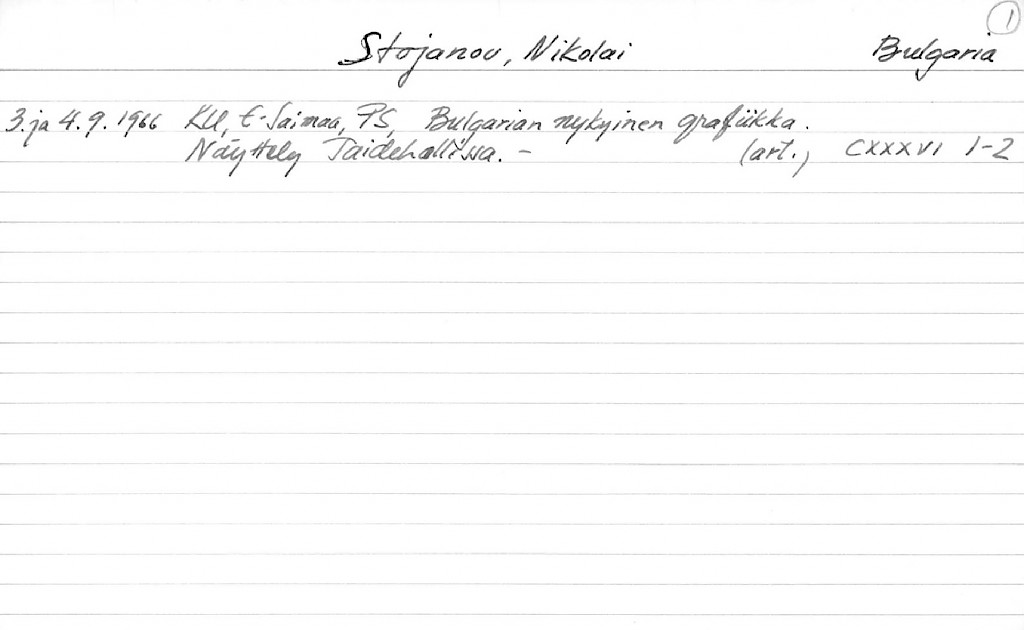 1
Stojanov, Nikolai Bulgaria
3. ja 4.9.1966 KU, E-Saimaa, PS, Bulgarian nykyinen grafiikka.
Näyttely Taidehallissa. – (art.) CXXXVI 1-2